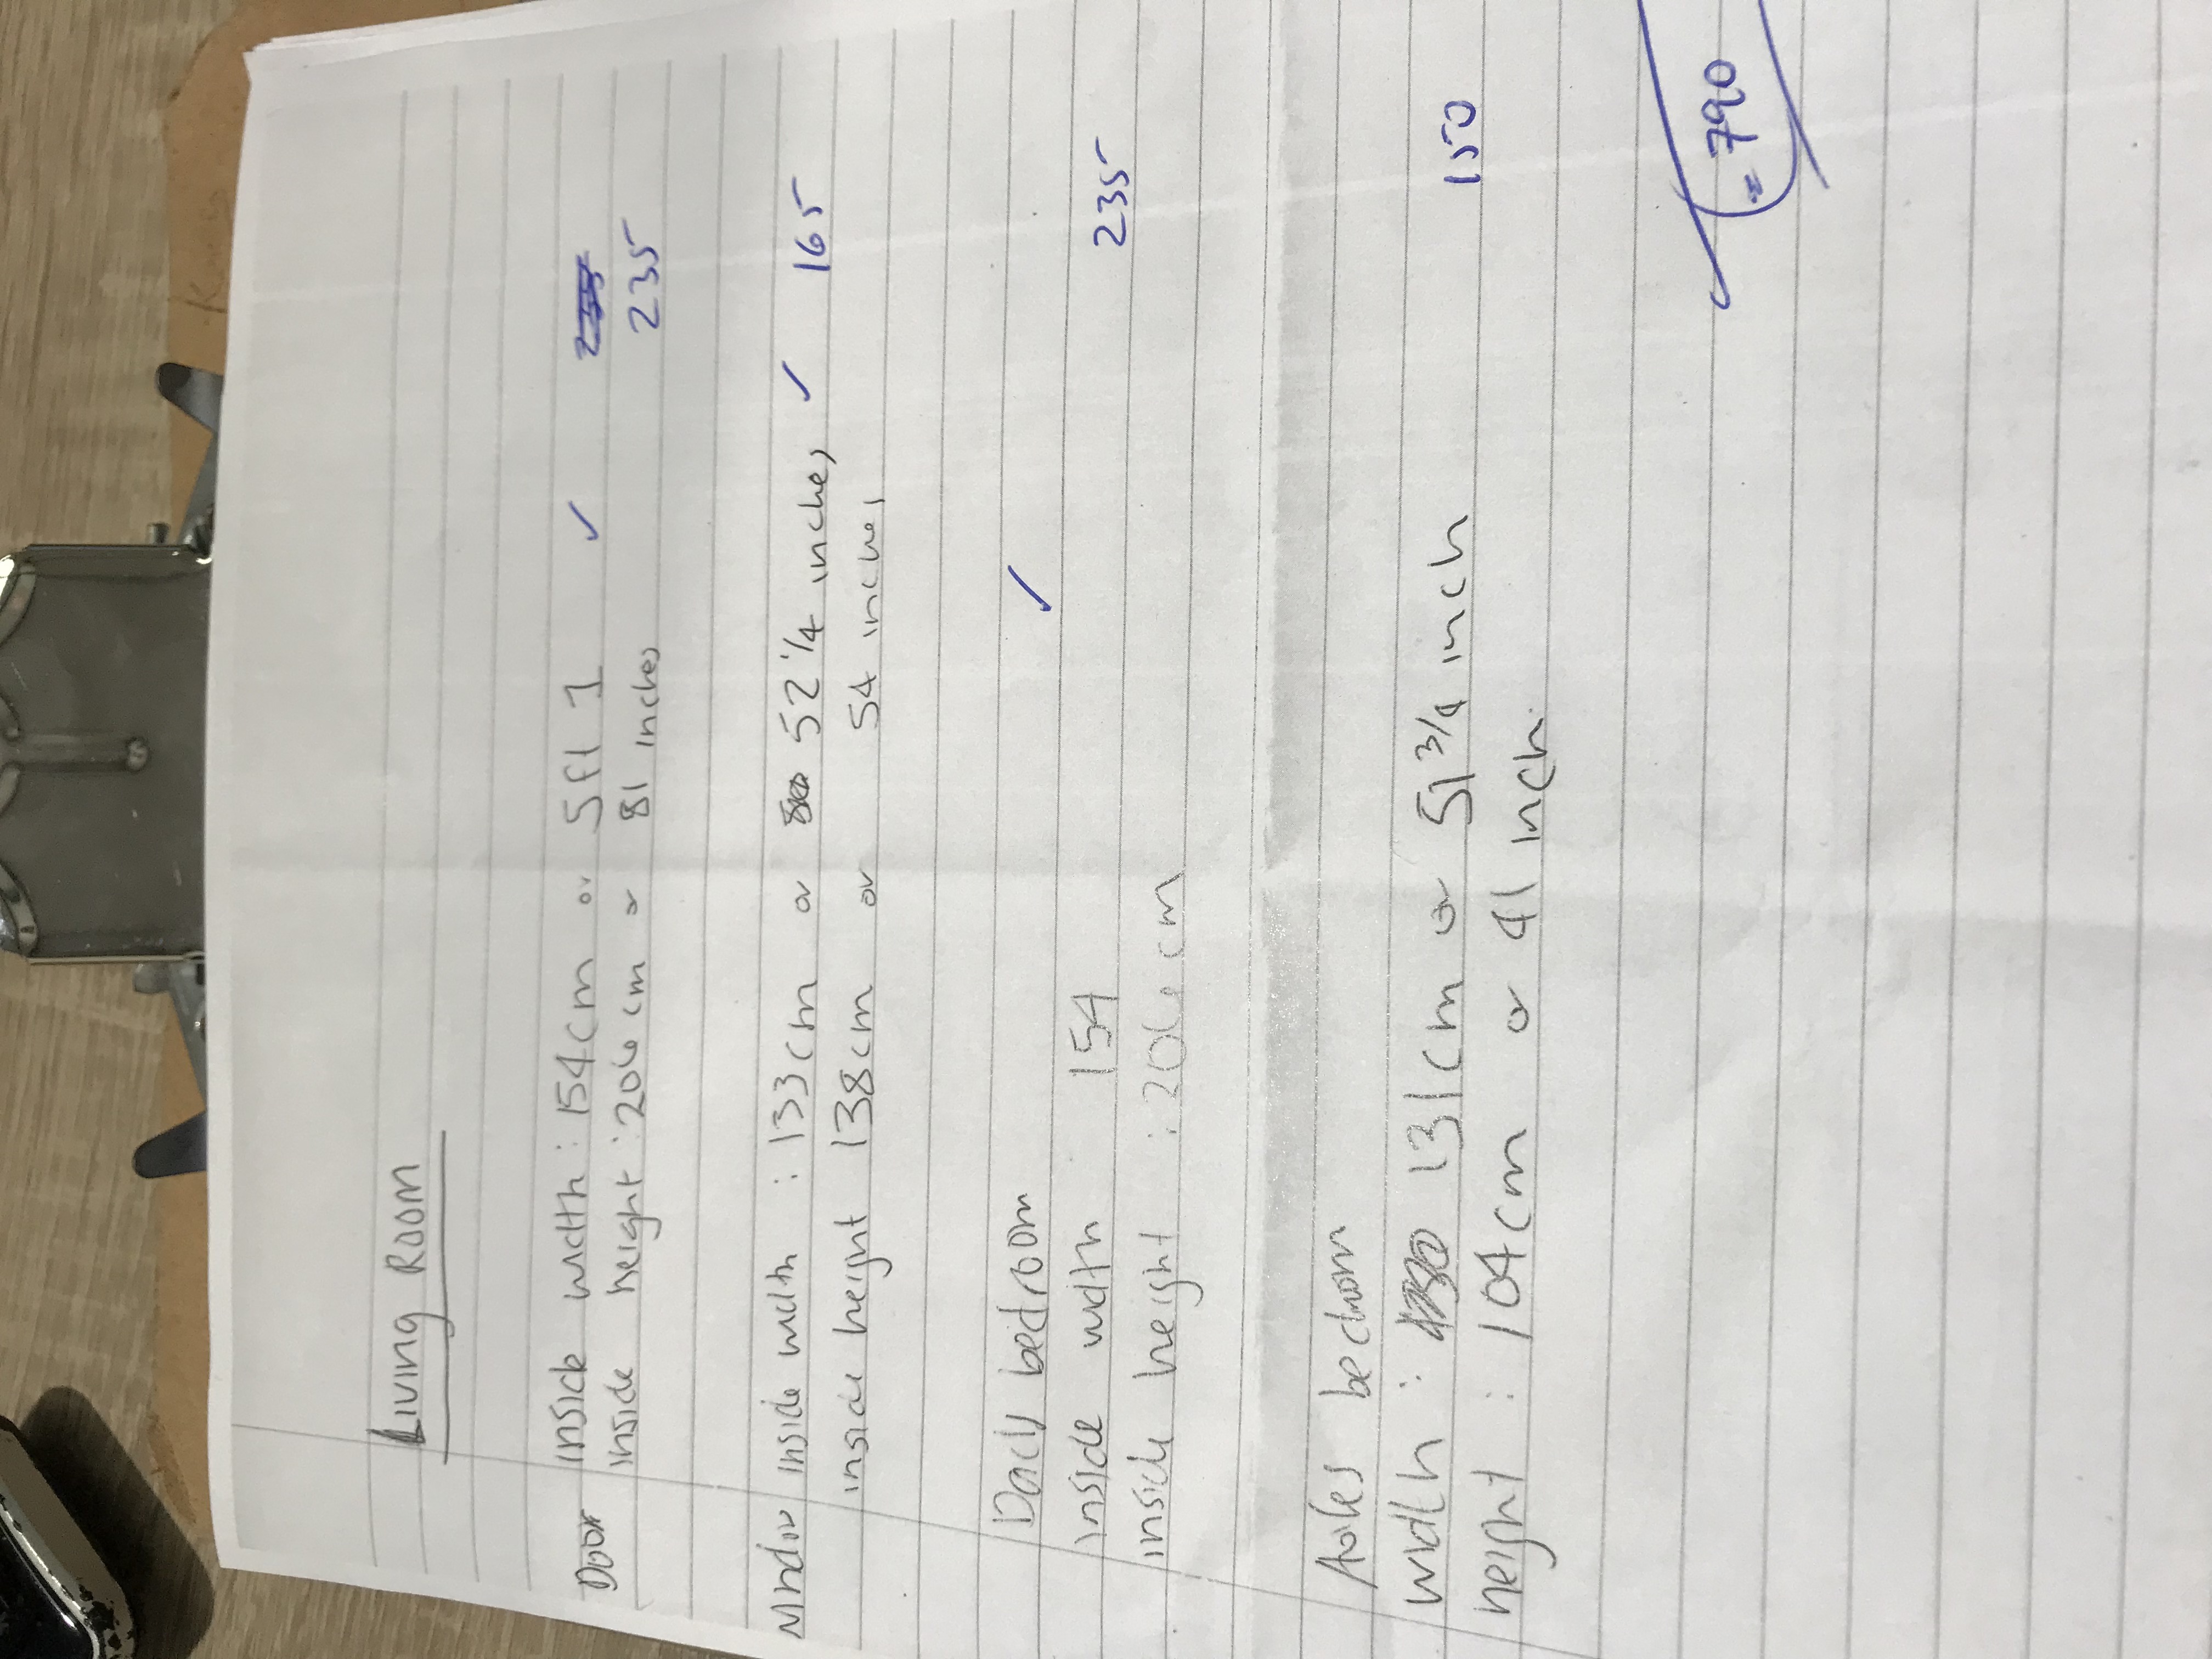 Living Room
Door inside width : 154cm or 5ft 1 ✓
inside height : 206cm or 81 inches 235
Window inside width : 133cm or 52 1/4 inches ✓ 165
inside height 138cm or 54 inches
bedroom ✓
inside width 154 235
inside height : 206cm
bedroom
width : 131cm or 51 3/4 inch 150
height : 104cm or 41 inch
= 790